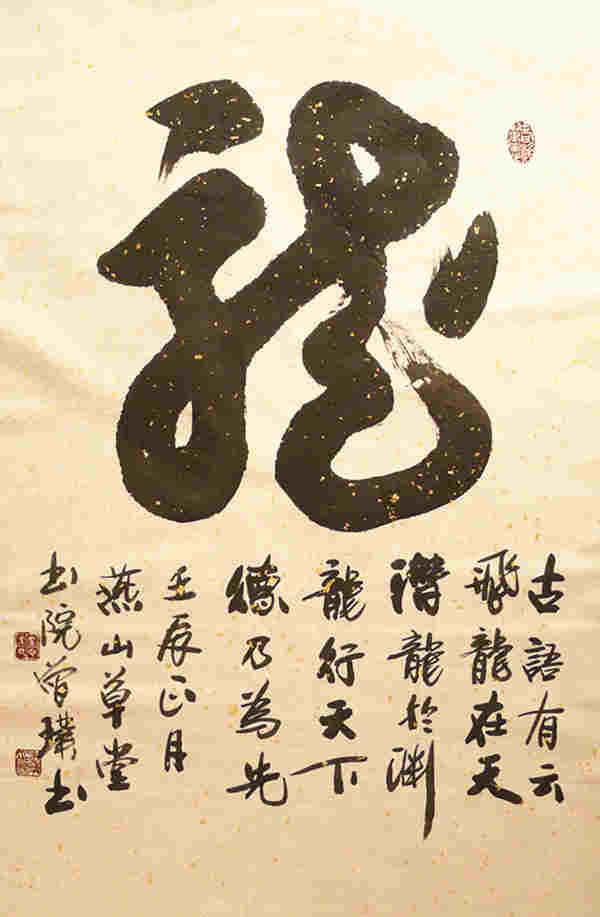 龍
古語有云
飛龍在天
潛龍於渊
龍行天下
德乃為先
壬辰正月
燕山草堂
书院曾璞书